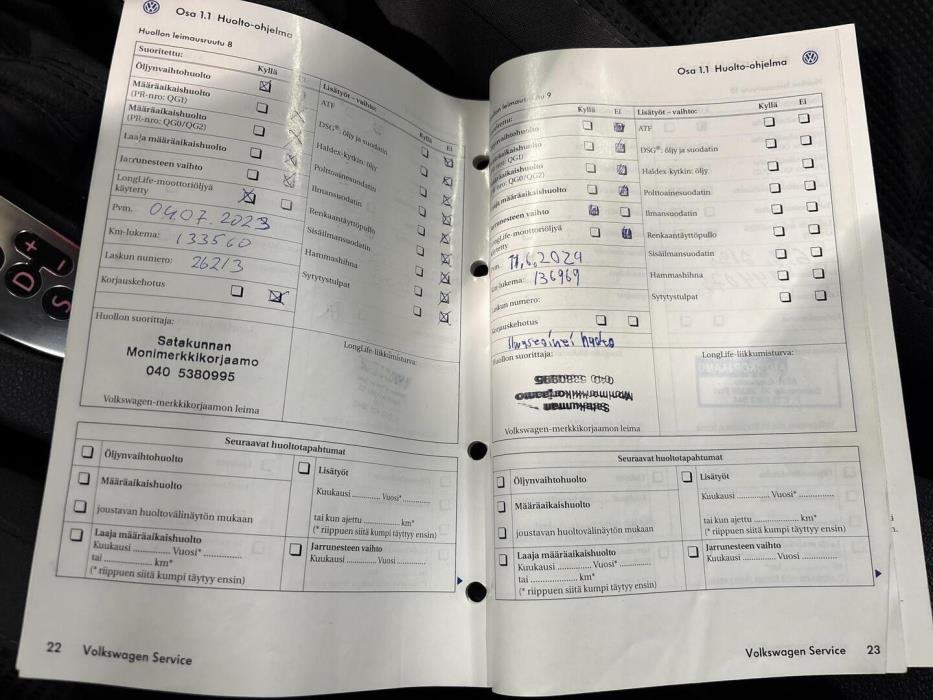 Osa 1.1 Huolto-ohjelma
Huollon leimausruutu 8
Suoritettu:
Kyllä
Öljynvaihtohuolto
Määräaikaishuolto
(PR-nro: QG1)
Määräaikaishuolto
(PR-nro: QG0/QG2)
Laaja määräaikaishuolto
Jarrunesteen vaihto
LongLife-moottoriöljyä
käytetty
Pvm. 04.07.2023
Km-lukema: 133560
Laskun numero: 26213
Korjauskehotus
Lisätyöt – vaihto:
Kyllä Ei
ATF
DSG®: öljy ja suodatin
Haldex-kytkin: öljy
Polttoainesuodatin
Ilmansuodatin
Renkaantäyttöpullo
Sisäilmansuodatin
Hammashihna
Sytytystulpat
Huollon suorittaja:
Satakunnan
Monimerkkikorjaamo
040 5380995
Volkswagen-merkkikorjaamon leima
LongLife-liikkumisturva:
Seuraavat huoltotapahtumat
Öljynvaihtohuolto
Määräaikaishuolto
joustavan huoltovälinäytön mukaan
Laaja määräaikaishuolto
Kuukausi ............ Vuosi* ............
tai ............ km*
(* riippuen siitä kumpi täytyy ensin)
Lisätyöt
Kuukausi ............ Vuosi* ............
tai kun ajettu ............ km*
(* riippuen siitä kumpi täytyy ensin)
Jarrunesteen vaihto
Kuukausi ............ Vuosi ............
22 Volkswagen Service
Osa 1.1 Huolto-ohjelma
leimausruutu 9
Kyllä Ei
määräaikaishuolto
LongLife-moottoriöljyä
11.6.2024
lukema: 136969
Laskun numero:
Korjauskehotus
Lisätyöt – vaihto:
Kyllä Ei
ATF
DSG®: öljy ja suodatin
Haldex-kytkin: öljy
Polttoainesuodatin
Ilmansuodatin
Renkaantäyttöpullo
Sisäilmansuodatin
Hammashihna
Sytytystulpat
Huollon suorittaja:
040 5380995
Monimerkkikorjaamo
Satakunnan
Volkswagen-merkkikorjaamon leima
LongLife-liikkumisturva:
Seuraavat huoltotapahtumat
Öljynvaihtohuolto
Määräaikaishuolto
joustavan huoltovälinäytön mukaan
Laaja määräaikaishuolto
Kuukausi ............ Vuosi* ............
tai ............ km*
(* riippuen siitä kumpi täytyy ensin)
Lisätyöt
Kuukausi ............ Vuosi* ............
tai kun ajettu ............ km*
(* riippuen siitä kumpi täytyy ensin)
Jarrunesteen vaihto
Kuukausi ............ Vuosi ............
Volkswagen Service 23
D
S
+
−